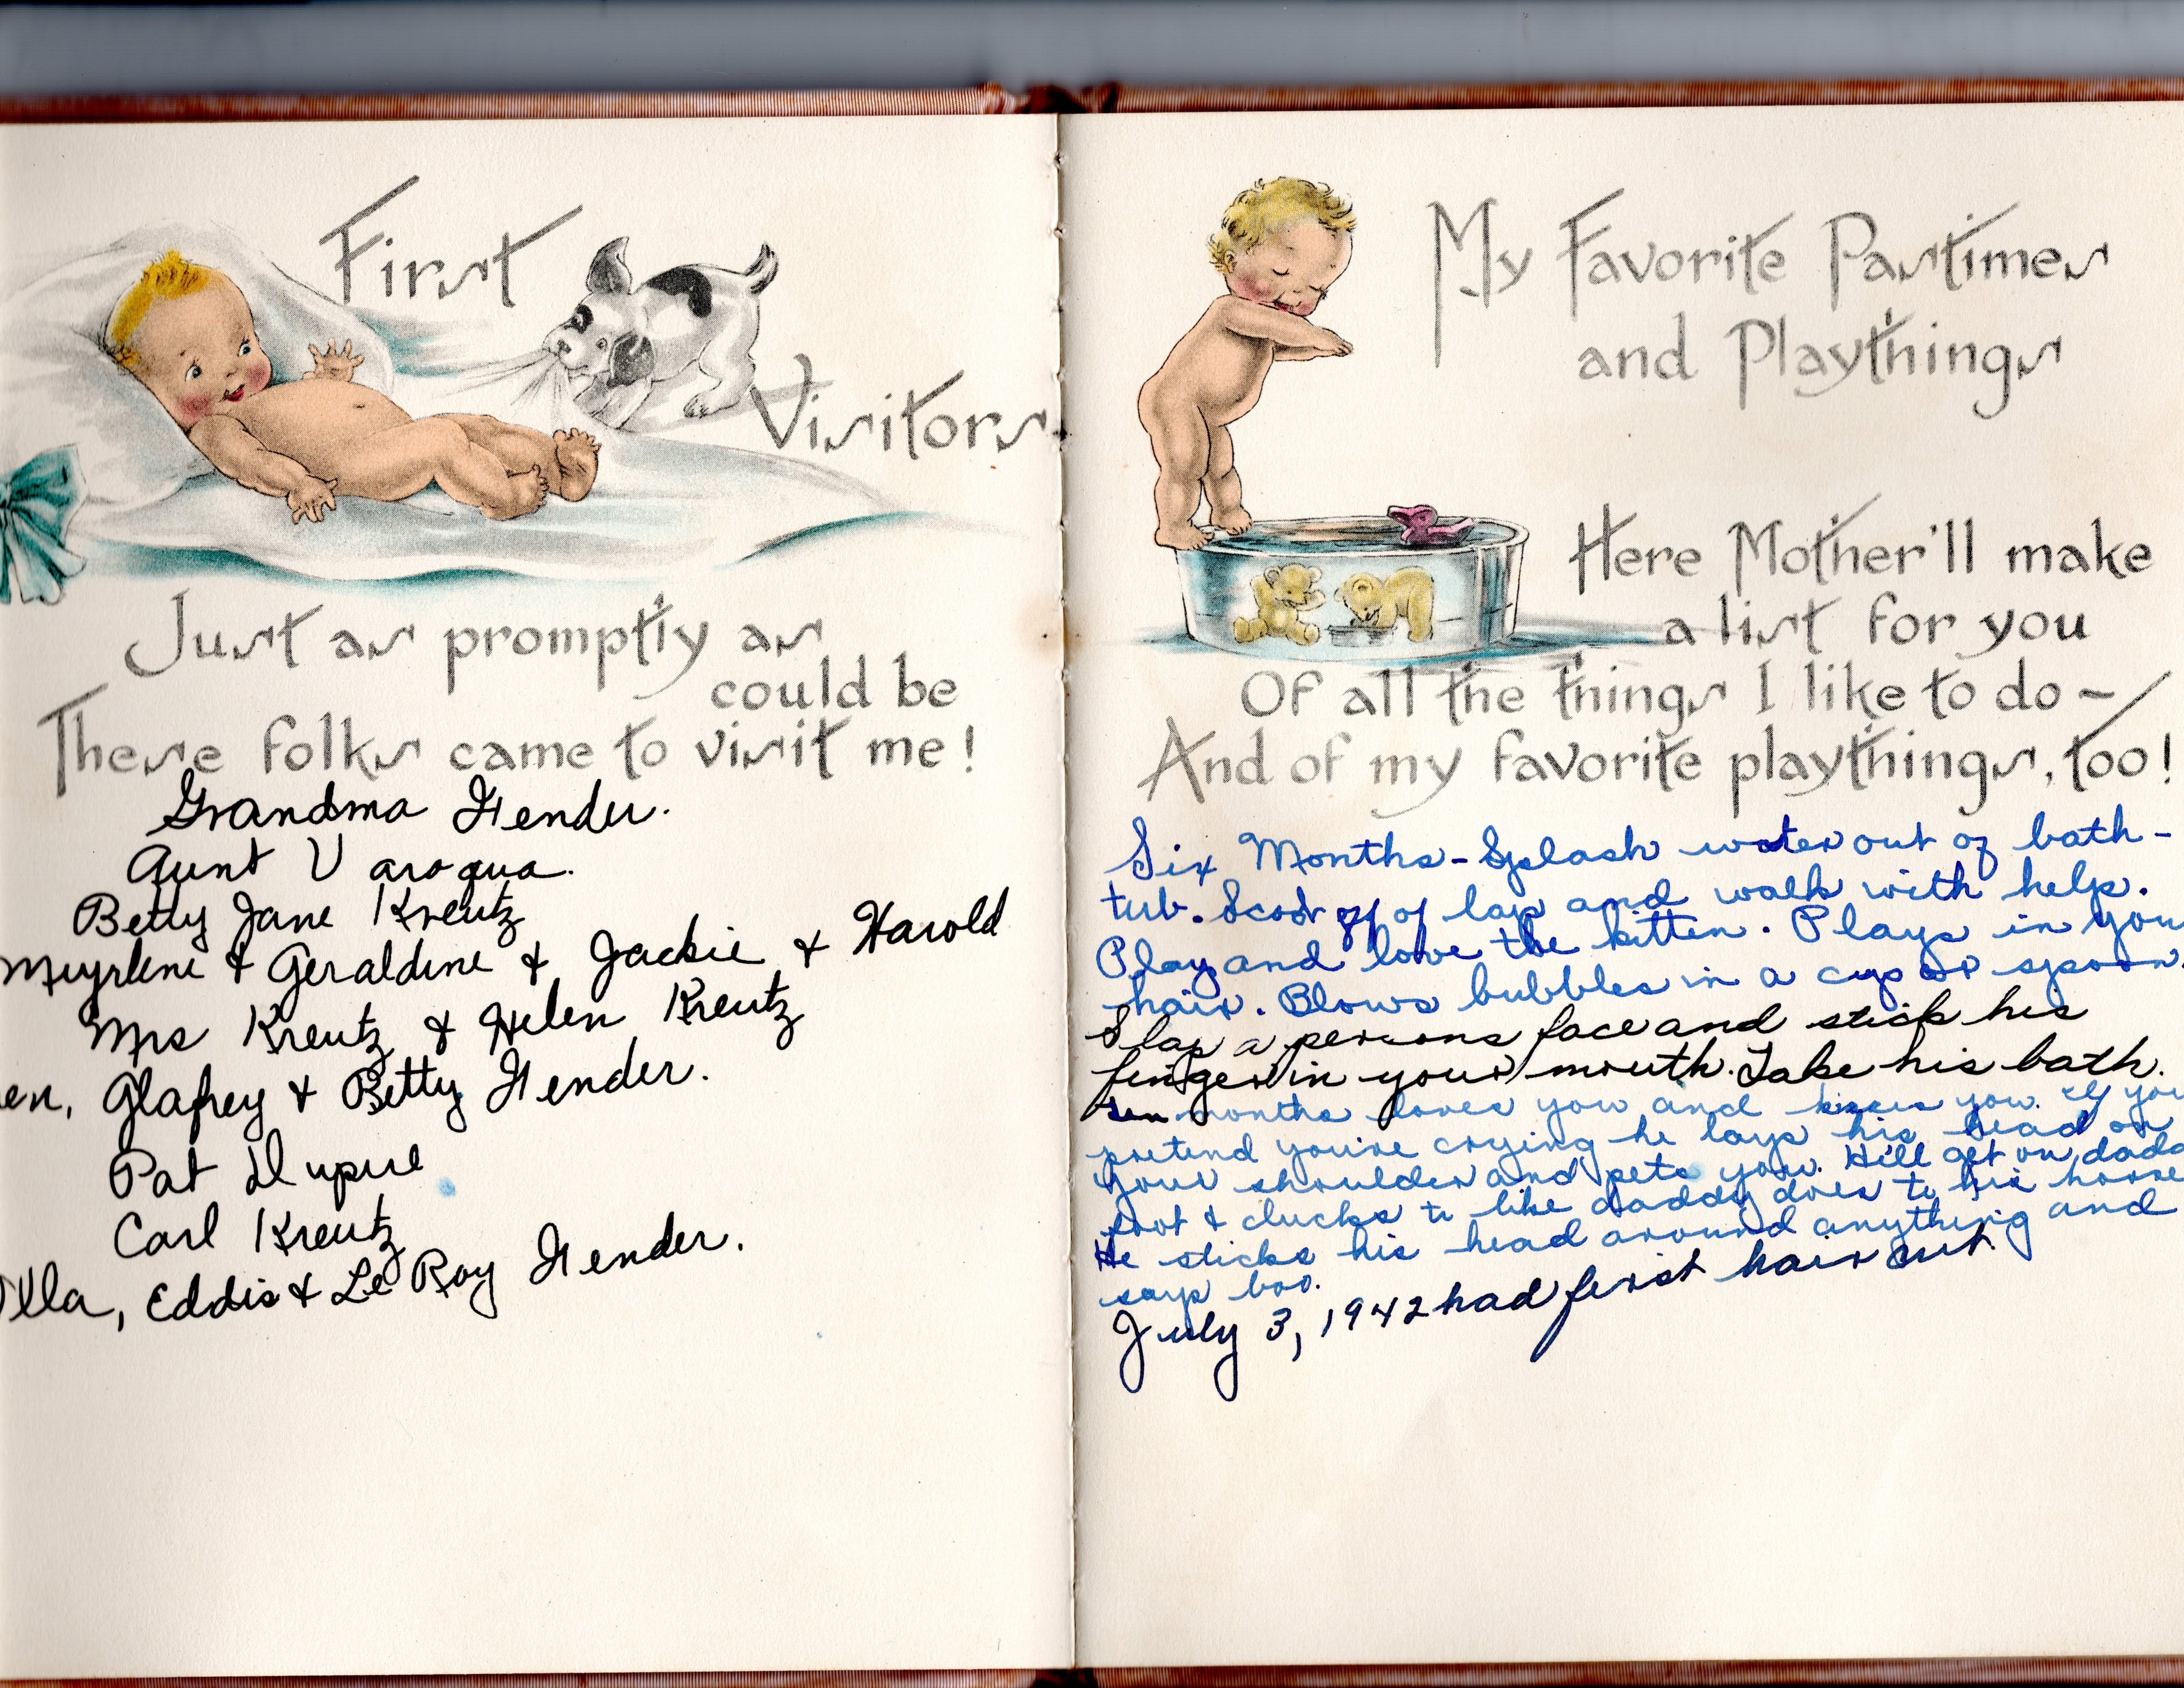 First
Visitors
Just as promptly as
could be
These folks came to visit me!
Grandma Fender.
Aunt Varoqua.
Betty Jane Kreutz
Meyrlene & Geraldine & Jackie & Harold
Mrs Kreutz & Helen Kreutz
en, Glafrey & Betty Fender.
Pat
Carl Kreutz
lla, Eddie & Le Roy Fender.
My Favorite Pastimes
and Playthings
Here Mother'll make
a list for you
Of all the things I like to do -
And of my favorite playthings, too!
Six Months - Splash water out of bath-
tub. Scoot off of lap and walk with help.
Play and love the kitten. Plays in you
hair. Blows bubbles in a cup or spoon
Slap a persons face and stick his
finger in your mouth. Take his bath.
months loves you and kisses you. If you
pretend you're crying he lays his head on
your shoulder and pets you. He'll get on dadd
foot & clucks to like daddy does to his horse
He sticks his head around anything and
says boo.
July 3, 1942 had first hair cut